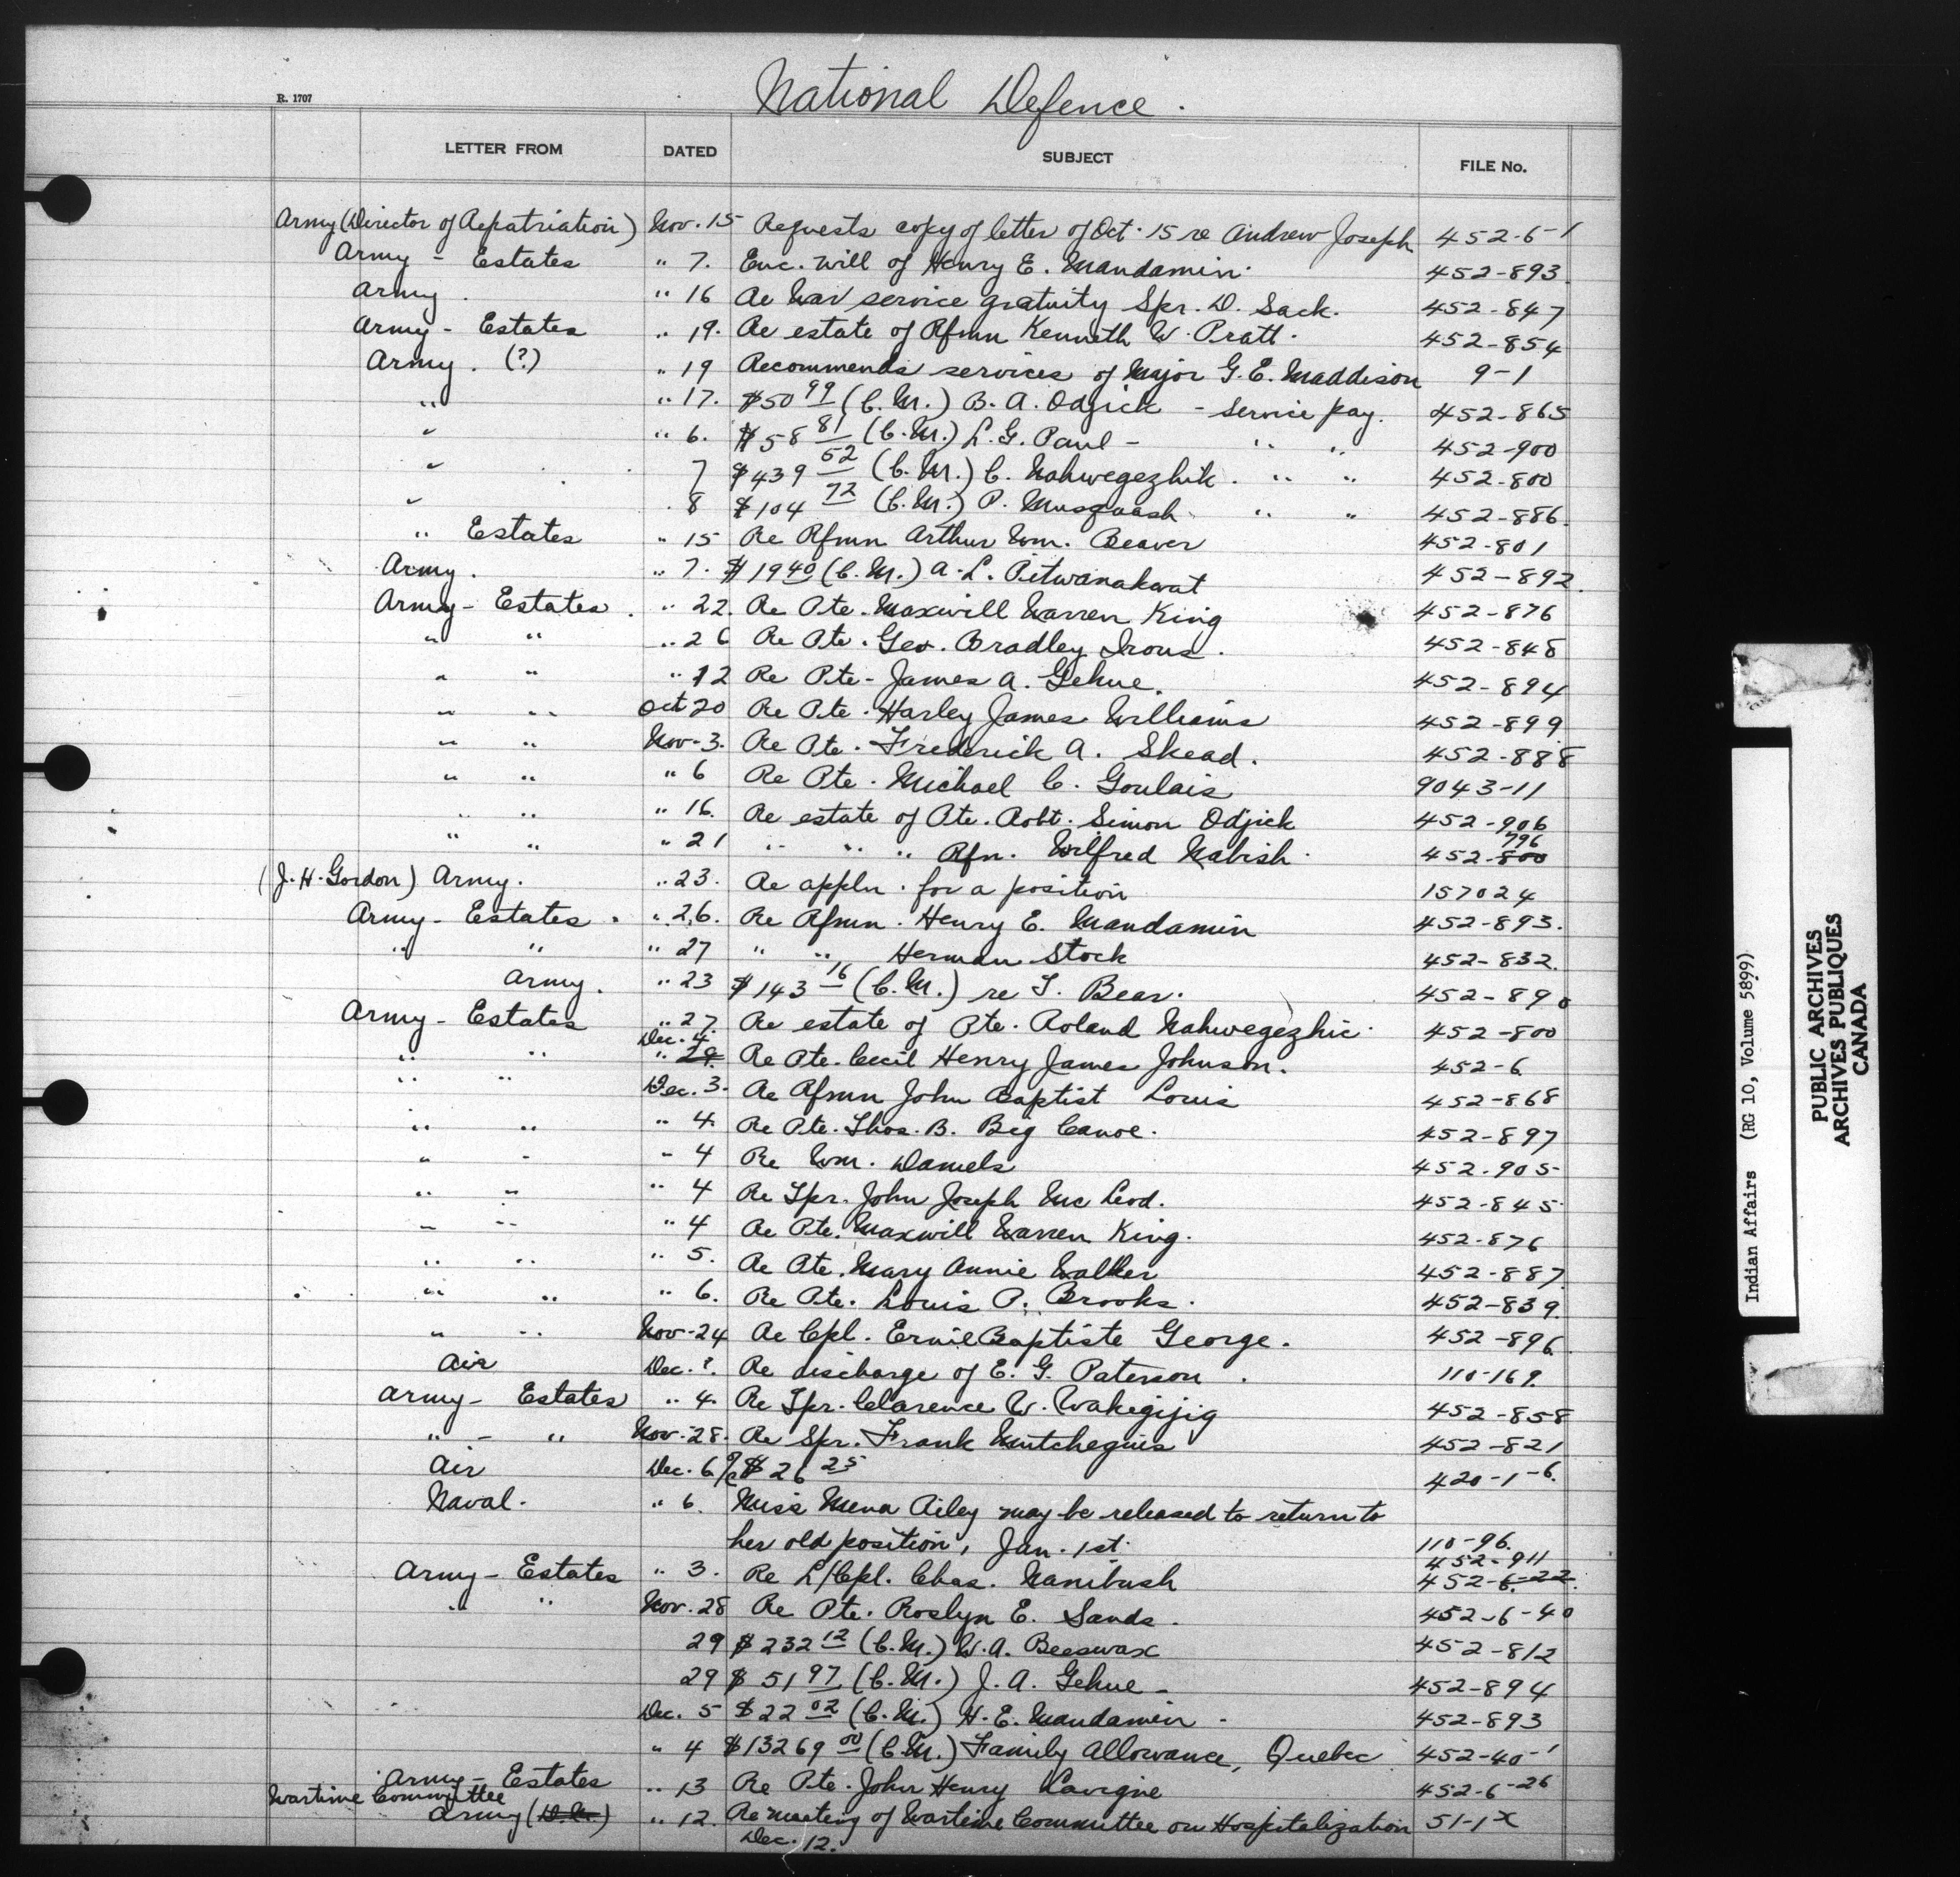 National Defence.
R. 1707
LETTER FROM DATED SUBJECT FILE No.
Army (Director of Repatriation) Nov. 15 Requests copy of letter of Oct. 15 re Andrew Joseph 452-6-1
Army - Estates " 7. Enc. will of Henry E. Mandamin. 452-893.
Army. " 16 Re War service gratuity Spr. D. Sack. 452-847
Army - Estates " 19. Re estate of Rfmn Kenneth W. Pratt. 452-854
Army. (?) " 19 Recommends services of Major G.E. Maddison 9-1
" " 17. $50 99 (C.M.) B. A. Odjick - Service pay. 452-865
" " 6. $58 81 (C.M.) L. G. Paul - " " 452-900
" 7 $439 52 (C.M.) C. Nahwegezhik. " " 452-800
" 8 $104 72 (C.M.) P. Musquash " " 452-886.
" Estates " 15 Re Rfmn Arthur Wm. Beaver 452-801
Army. " 7. $19 40 (C.M.) A. L. Pitwanakwat 452-892.
Army - Estates. " 22. Re Pte. Maxwill Warren King 452-876
" " " 26 Re Pte. Geo. Bradley Irons. 452-848
" " " 12 Re Pte - James A. Gehue. 452-894
" " Oct 20 Re Pte. Harley James Williams 452-899
" " Nov. 3. Re Pte. Frederick A. Skead. 452-888
" " " 6 Re Pte. Michael C. Goulais 9043-11
" " " 16. Re estate of Pte. Robt. Simon Odjick 452-906
" " " 21 " " " Rfn. Wilfred Nabish. 452-800 796
(J. H. Gordon) Army. " 23. Re appln. for a position 157024
Army - Estates. " 26. Re Rfmn. Henry E. Mandamin 452-893.
" " " 27 " " Herman Stock 452-832.
Army. " 23 $143 16 (C.M.) re T. Bear. 452-890
Army - Estates " 27. Re estate of Pte. Roland Nahwegezhic. 452-800
" " Dec. 4. " 29. Re Pte. Cecil Henry James Johnson. 452-6
" " Dec. 3. Re Rfmn John Baptist Louis 452-868
" " " 4. Re Pte. Thos. B. Big Canoe. 452-897
" " " 4 Re Wm. Daniels 452-905
" " " 4 Re Tpr. John Joseph Mc Leod. 452-845
" " " 4 Re Pte. Maxwill Warren King. 452-876
" " " 5. Re Pte. Mary Annie Walker 452-887.
" " " 6. Re Pte. Louis P. Brooks. 452-839.
" " Nov. 24 Re Cpl. Ernie Baptiste George. 452-896
Air Dec. ?. Re discharge of E. G. Paterson. 110-169.
Army - Estates " 4. Re Tpr. Clarence W. Wakegijig 452-858
" - " Nov. 28. Re Spr. Frank Mutcheguis 452-821
Air Dec. 6 $26 25 420-1-6.
Naval. " 6. Miss Mena Riley may be released to return to
her old position, Jan. 1st. 110-96.
Army - Estates " 3. Re L/Cpl. Chas. Nanibush 452-911 452-6-22.
" " Nov. 28 Re Pte. Roslyn E. Sands. 452-6-40
29 $232 12 (C.M.) W. A. Beeswax 452-812
29 $51 97 (C.M.) J. A. Gehue - 452-894
Dec. 5 $22 02 (C.M.) H. E. Mandamin - 452-893
" 4 $13269 00 (C.M.) Family Allowance, Quebec 452-40-1
Army - Estates " 13 Re Pte. John Henry Lavigne 452-6-26
Wartime Committee
Army " 12. Re meeting of Wartime Committee on Hospitalization 51-1x
Dec. 12.
Indian Affairs (RG 10, Volume 5899)
PUBLIC ARCHIVES
ARCHIVES PUBLIQUES
CANADA